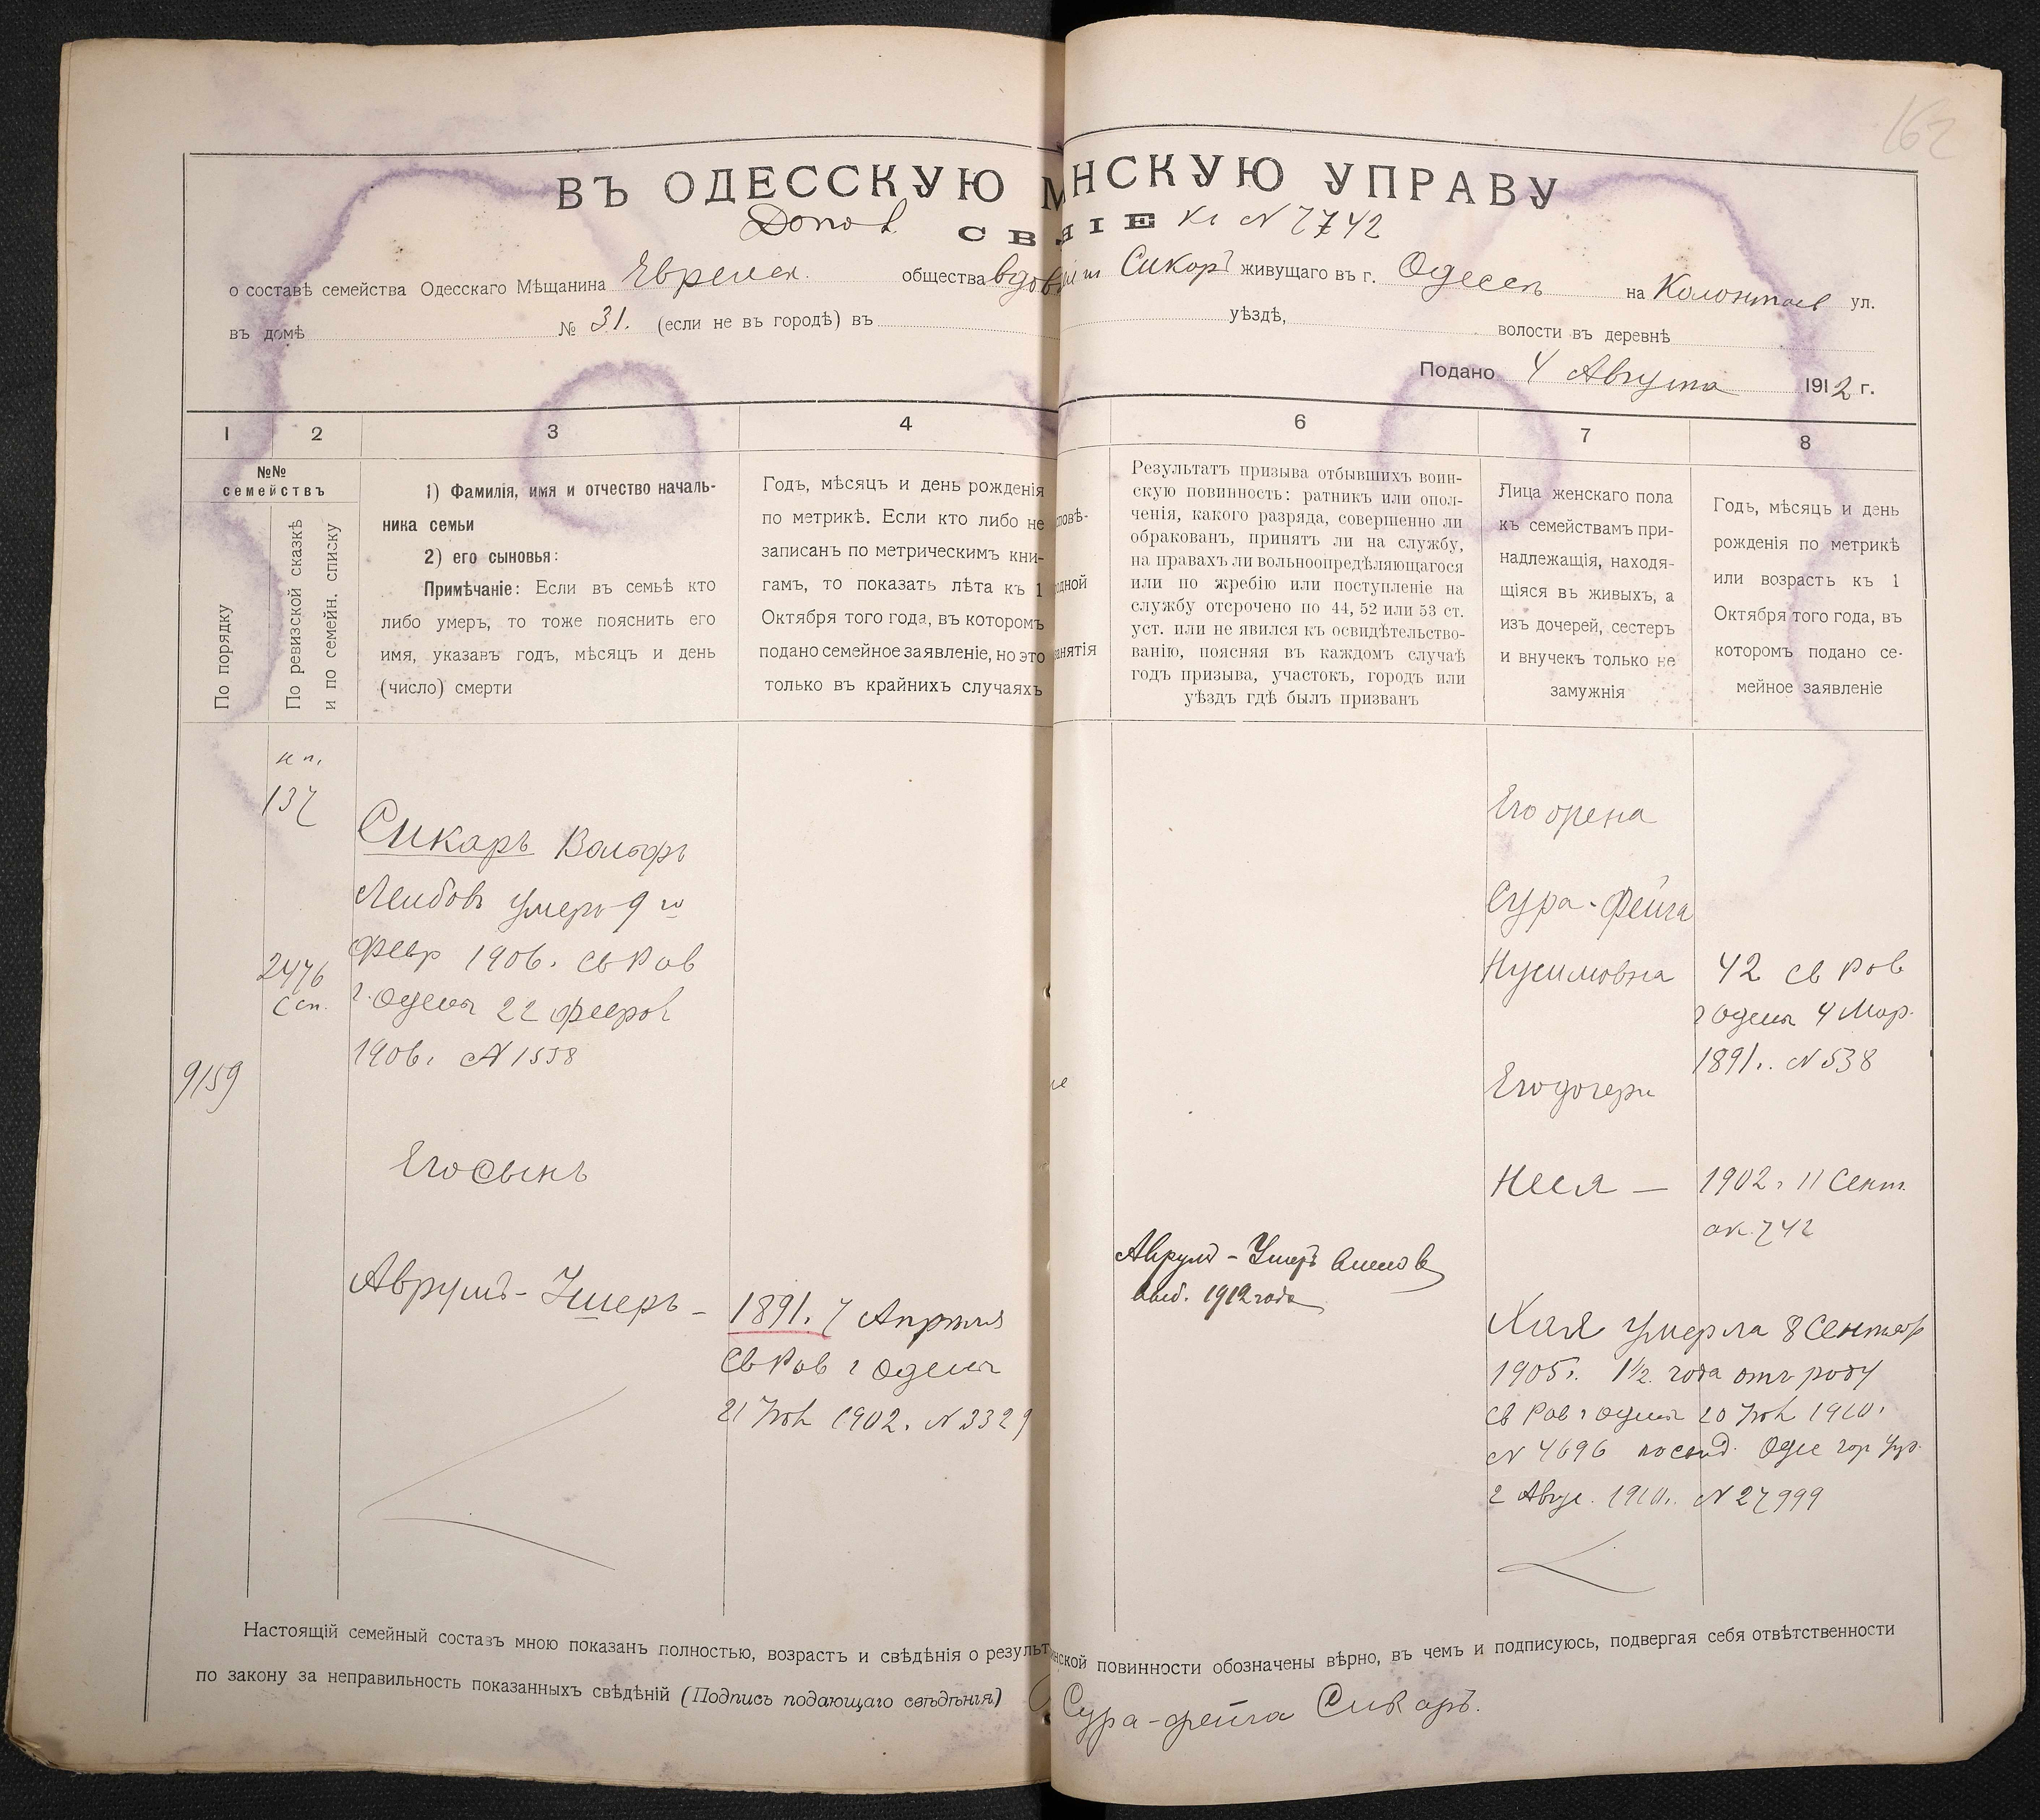 162
ВЪ ОДЕССКУЮ М НСКУЮ УПРАВУ
Допов СВ НІЕ Кг N 7742
о составѣ семейства Одесскаго Мѣщанина Еврейск. общества вдовы Сикоръ живущаго въ г. Одессѣ на Колонтаев ул.
въ домѣ № 31. (если не въ городѣ) въ уѣздѣ, волости въ деревнѣ
Подано 4 Августа 1912 г.
1 2 3 4 6 7 8
№№
семействъ
По порядку
По ревизской сказкѣ
и по семейн. списку
1) Фамилія, имя и отчество началь-
ника семьи
2) его сыновья:
Примѣчаніе: Если въ семьѣ кто
либо умеръ, то тоже пояснить его
имя, указавъ годъ, мѣсяцъ и день
(число) смерти
Годъ, мѣсяцъ и день рожденія
по метрикѣ. Если кто либо не
записанъ по метрическимъ кни-
гамъ, то показать лѣта къ 1
Октября того года, въ которомъ
подано семейное заявленіе, но это
только въ крайнихъ случаяхъ
повѣ-
одной
анятія
Результатъ призыва отбывшихъ воин-
скую повинность: ратникъ или опол-
ченія, какого разряда, совершенно ли
обракованъ, принятъ ли на службу,
на правахъ ли вольноопредѣляющагося
или по жребію или поступленіе на
службу отсрочено по 44, 52 или 53 ст.
уст. или не явился къ освидѣтельство-
ванію, поясняя въ каждомъ случаѣ
годъ призыва, участокъ, городъ или
уѣздъ гдѣ былъ призванъ
Лица женскаго пола
къ семействамъ при-
надлежащія, находя-
щіяся въ живыхъ, а
изъ дочерей, сестеръ
и внучекъ только не
замужнія
Годъ, мѣсяцъ и день
рожденія по метрикѣ
или возрастъ къ 1
Октября того года, въ
которомъ подано се-
мейное заявленіе
н п.
137
2476
с сп.
9159
Сикаръ Вольфъ
Лейбовъ умеръ 9 го
февр 1906. св Рав
г. Одессы 22 феврал
1906. N 1558
Его сынъ
Аврумъ-Ушеръ –
1891. 7 Апрѣля
Св Рав г Одессы
21 Ноя 1902. N 3329
Аврумъ-Ушеръ
1912 года
Его жена
Сура-Фейга
Нусимовна
42 св Рав
г Одессы 4 Мар.
1891. N 538
Его дочери
Неся –
1902. 11 Сент.
ак. 742
Хая умерла 8 Сентяб
1905. 1½ года отъ роду
св Рав г Одессы 20 1910.
N 4696 Одес гор Упр.
2 Авгус. 1910. N 27999
Настоящій семейный составъ мною показанъ полностью, возрастъ и свѣдѣнія о результ нской повинности обозначены вѣрно, въ чемъ и подписуюсь, подвергая себя отвѣтственности
по закону за неправильность показанныхъ свѣдѣній (Подпись подающаго свѣдѣнія) Сура-фейга Сикаръ.